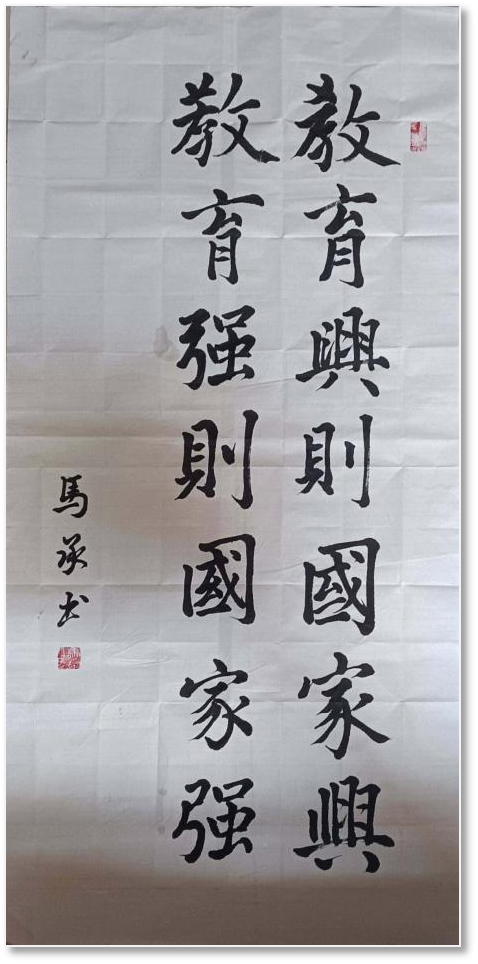 教育興則國家興
教育强則國家强
馬承书